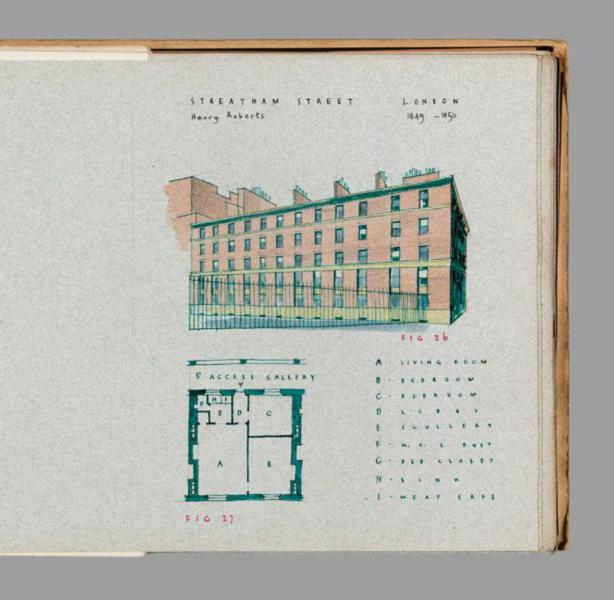 STREATHAM STREET LONDON
Henry Roberts 1849 - 1850
FIG 26
5' ACCESS GALLERY
F H I
E D C
A B
FIG 27
A - LIVING ROOM
B - BEDROOM
C - BEDROOM
D - LOBBY
E - SCULLERY
F - W.C. & DUST
G - BED CLOSET
H - SINK
I - MEAT SAFE